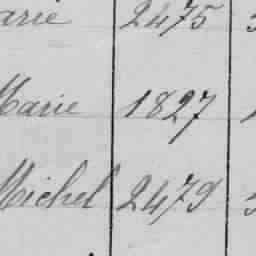 arie 2475
Marie 1827
Michel 2479